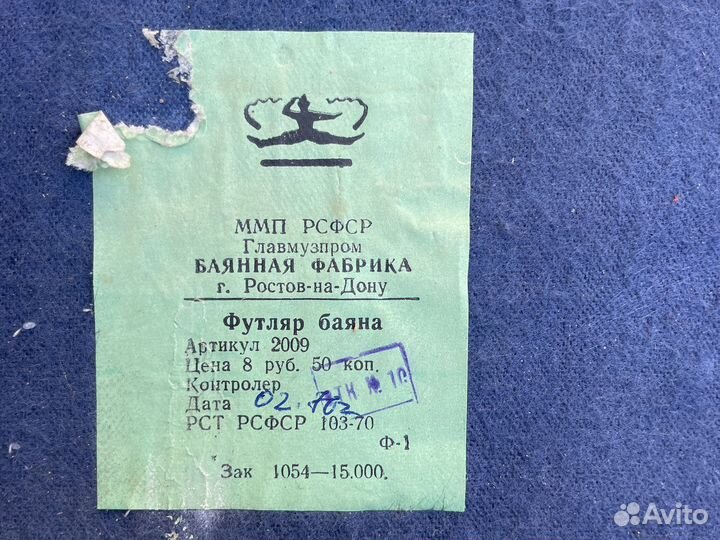 ММП РСФСР
Главмузпром
БАЯННАЯ ФАБРИКА
г. Ростов-на-Дону
Футляр баяна
Артикул 2009
Цена 8 руб. 50 коп.
Контролер
ОТК № 10
Дата 02.
РСТ РСФСР 103-70
Ф-1
Зак 1054—15.000.
Avito